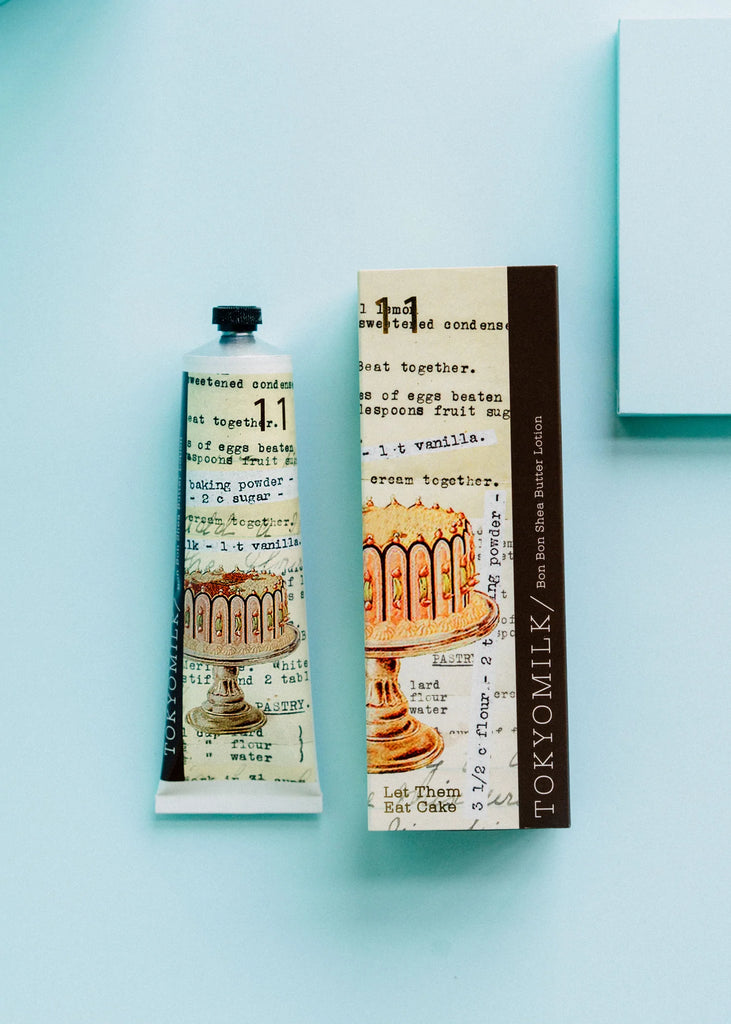 sweetened condense
11
eat together.
s of eggs beaten
aspoons fruit sug
baking powder -
- 2 c sugar -
cream together.
lk - 1 t vanilla.
white
nd 2 tabl
PASTRY.
flour
water
TOKYOMILK/ Bon Bon Shea Butter
1 lemon
11
sweetened condense
Beat together.
es of eggs beaten
lespoons fruit sug
- 1 t vanilla.
cream together.
3 1/2 c flour - 2 t
ng powder -
PASTR
lard
flour
water
Let Them
Eat Cake
TOKYOMILK/ Bon Bon Shea Butter Lotion